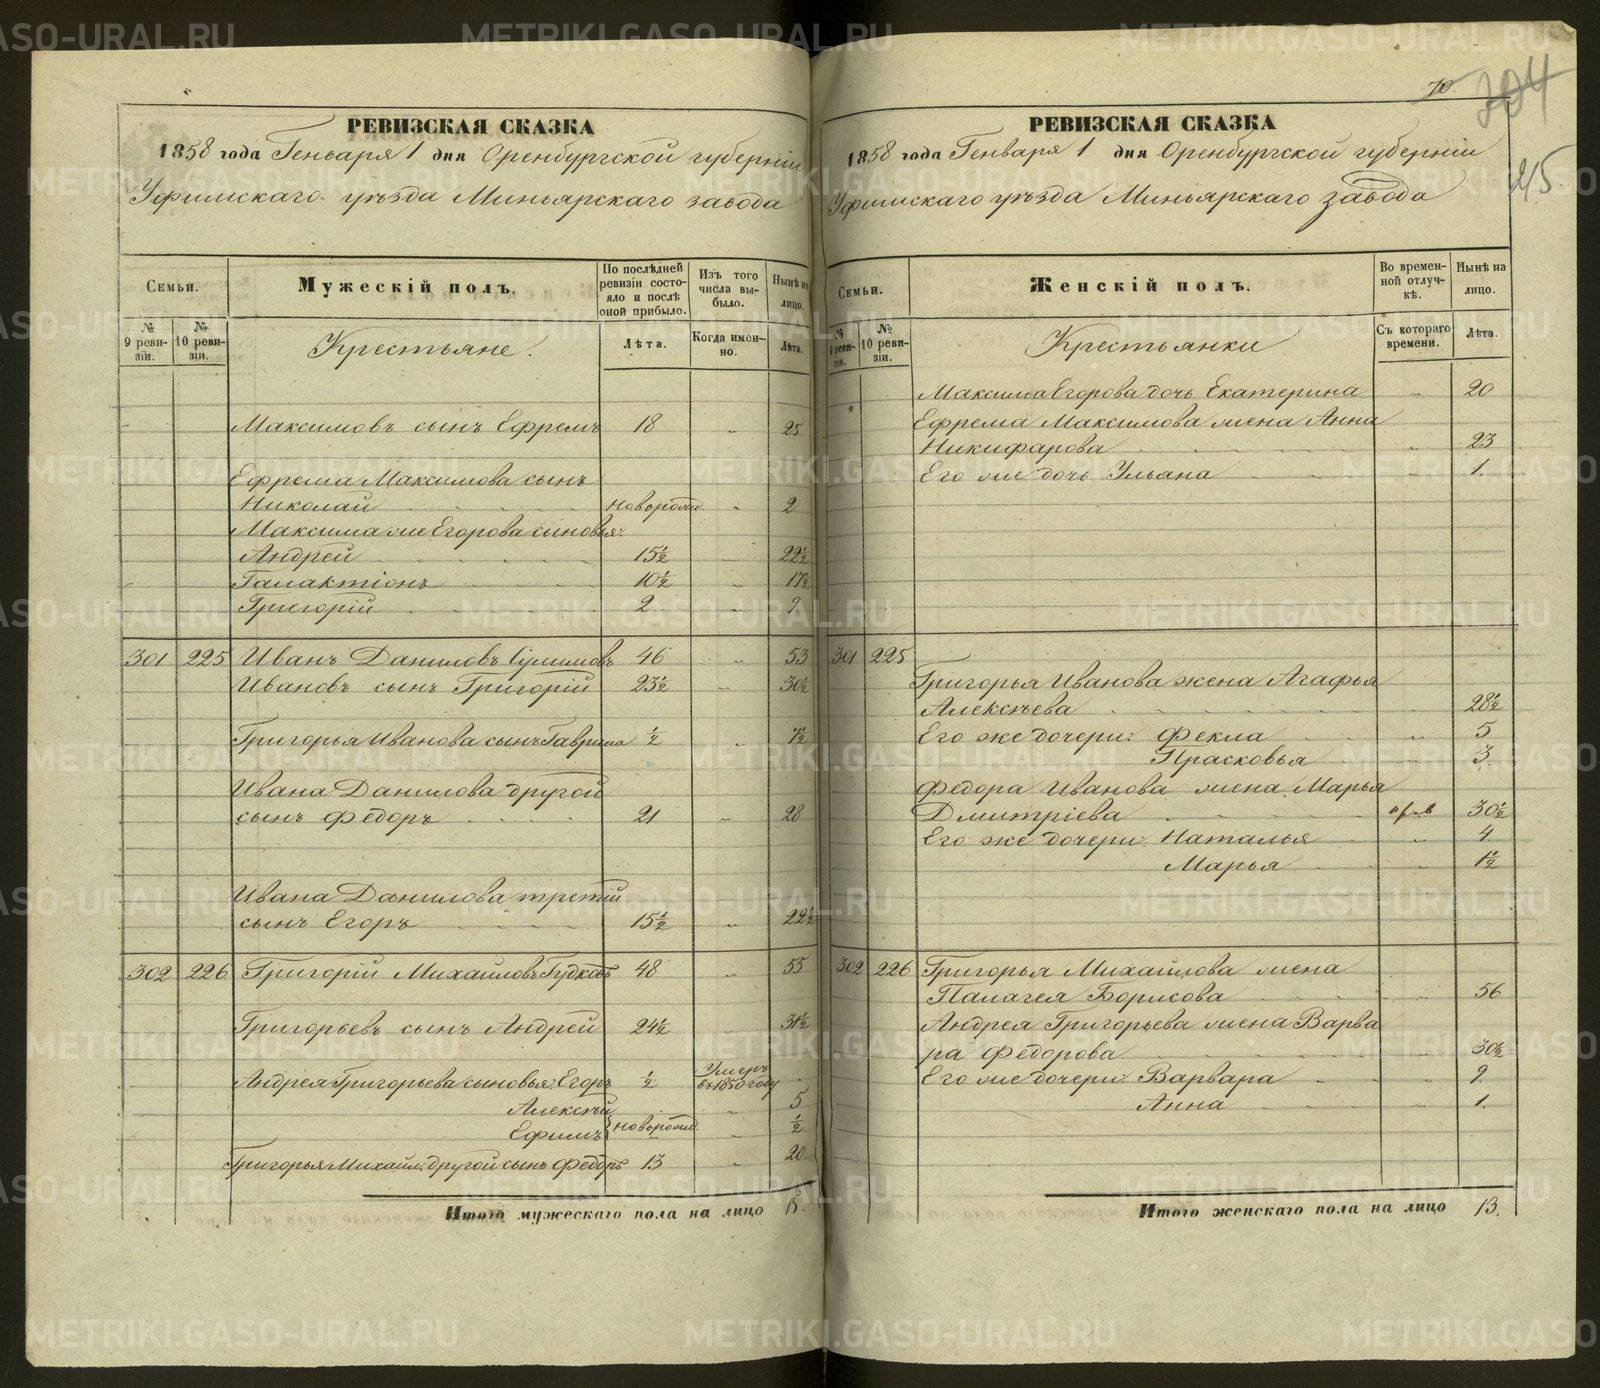 70.
304
РЕВИЗСКАЯ СКАЗКА
1858 года Генваря 1 дня Оренбургской губерніи
Уфимскаго уѣзда Миньярскаго завода
Семьи.
Мужескій полъ.
По послѣдней ревизіи состояло и послѣ оной прибыло.
Изъ того числа выбыло.
Нынѣ на лицо.
№ 9 ревизіи.
№ 10 ревизіи.
Крестьяне.
Лѣта.
Когда именно.
Лѣта.
Максимовъ сынъ Ефремъ 18 „ 25
Ефрема Максимова сынъ
Николай новорожд. „ 2
Максима же Егорова сыновья:
Андрей 15½ 22½
Галактіонъ 10½ „ 17½
Григорій 2 „ 9.
301 225 Иванъ Даниловъ Сулимовъ 46 „ 53
Ивановъ сынъ Григорій 23½ „ 30½
Григорья Иванова сынъ Гаврила ½ „ 7½
Ивана Данилова другой
сынъ Федоръ 21 „ 28
Ивана Данилова третій
сынъ Егоръ 15½ „ 22½
302 226 Григорій Михайловъ Гудковъ 48 „ 55
Григорьевъ сынъ Андрей 24½ „ 31½
Андрея Григорьева сыновья: Егоръ ½ Умеръ въ 1850 году
Алексѣй „ 5
Ефимъ новорожд. „ ½
Григорья Михайл. другой сынъ Федоръ 13 „ 20
Итого мужескаго пола на лицо
РЕВИЗСКАЯ СКАЗКА
1858 года Генваря 1 дня Оренбургской губерніи
Уфимскаго уѣзда Миньярскаго завода
Семьи.
Женскій полъ.
Во временной отлучкѣ.
Нынѣ на лицо.
№ 9 ревизіи.
№ 10 ревизіи.
Крестьянки
Съ котораго времени.
Лѣта.
Максима Егорова дочь Екатерина „ 20
Ефрема Максимова жена Анна
Никифарова „ 23
Его же дочь Ульяна „ 1.
301 225
Григорья Иванова жена Агафья
Алексѣева 28½
Его же дочери: Фекла „ 5
Прасковья „ 3.
Федора Иванова жена Марья
Дмитріева 30½
Его же дочери: Наталья „ 4
Марья „ 1½
302 226 Григорья Михайлова жена
Палагея Борисова „ 56
Андрея Григорьева жена Варва
ра Федорова „ 30½
Его же дочери: Варвара „ 9.
Анна „ 1.
Итого женскаго пола на лицо 13.
METRIKI.GASO-URAL.RU